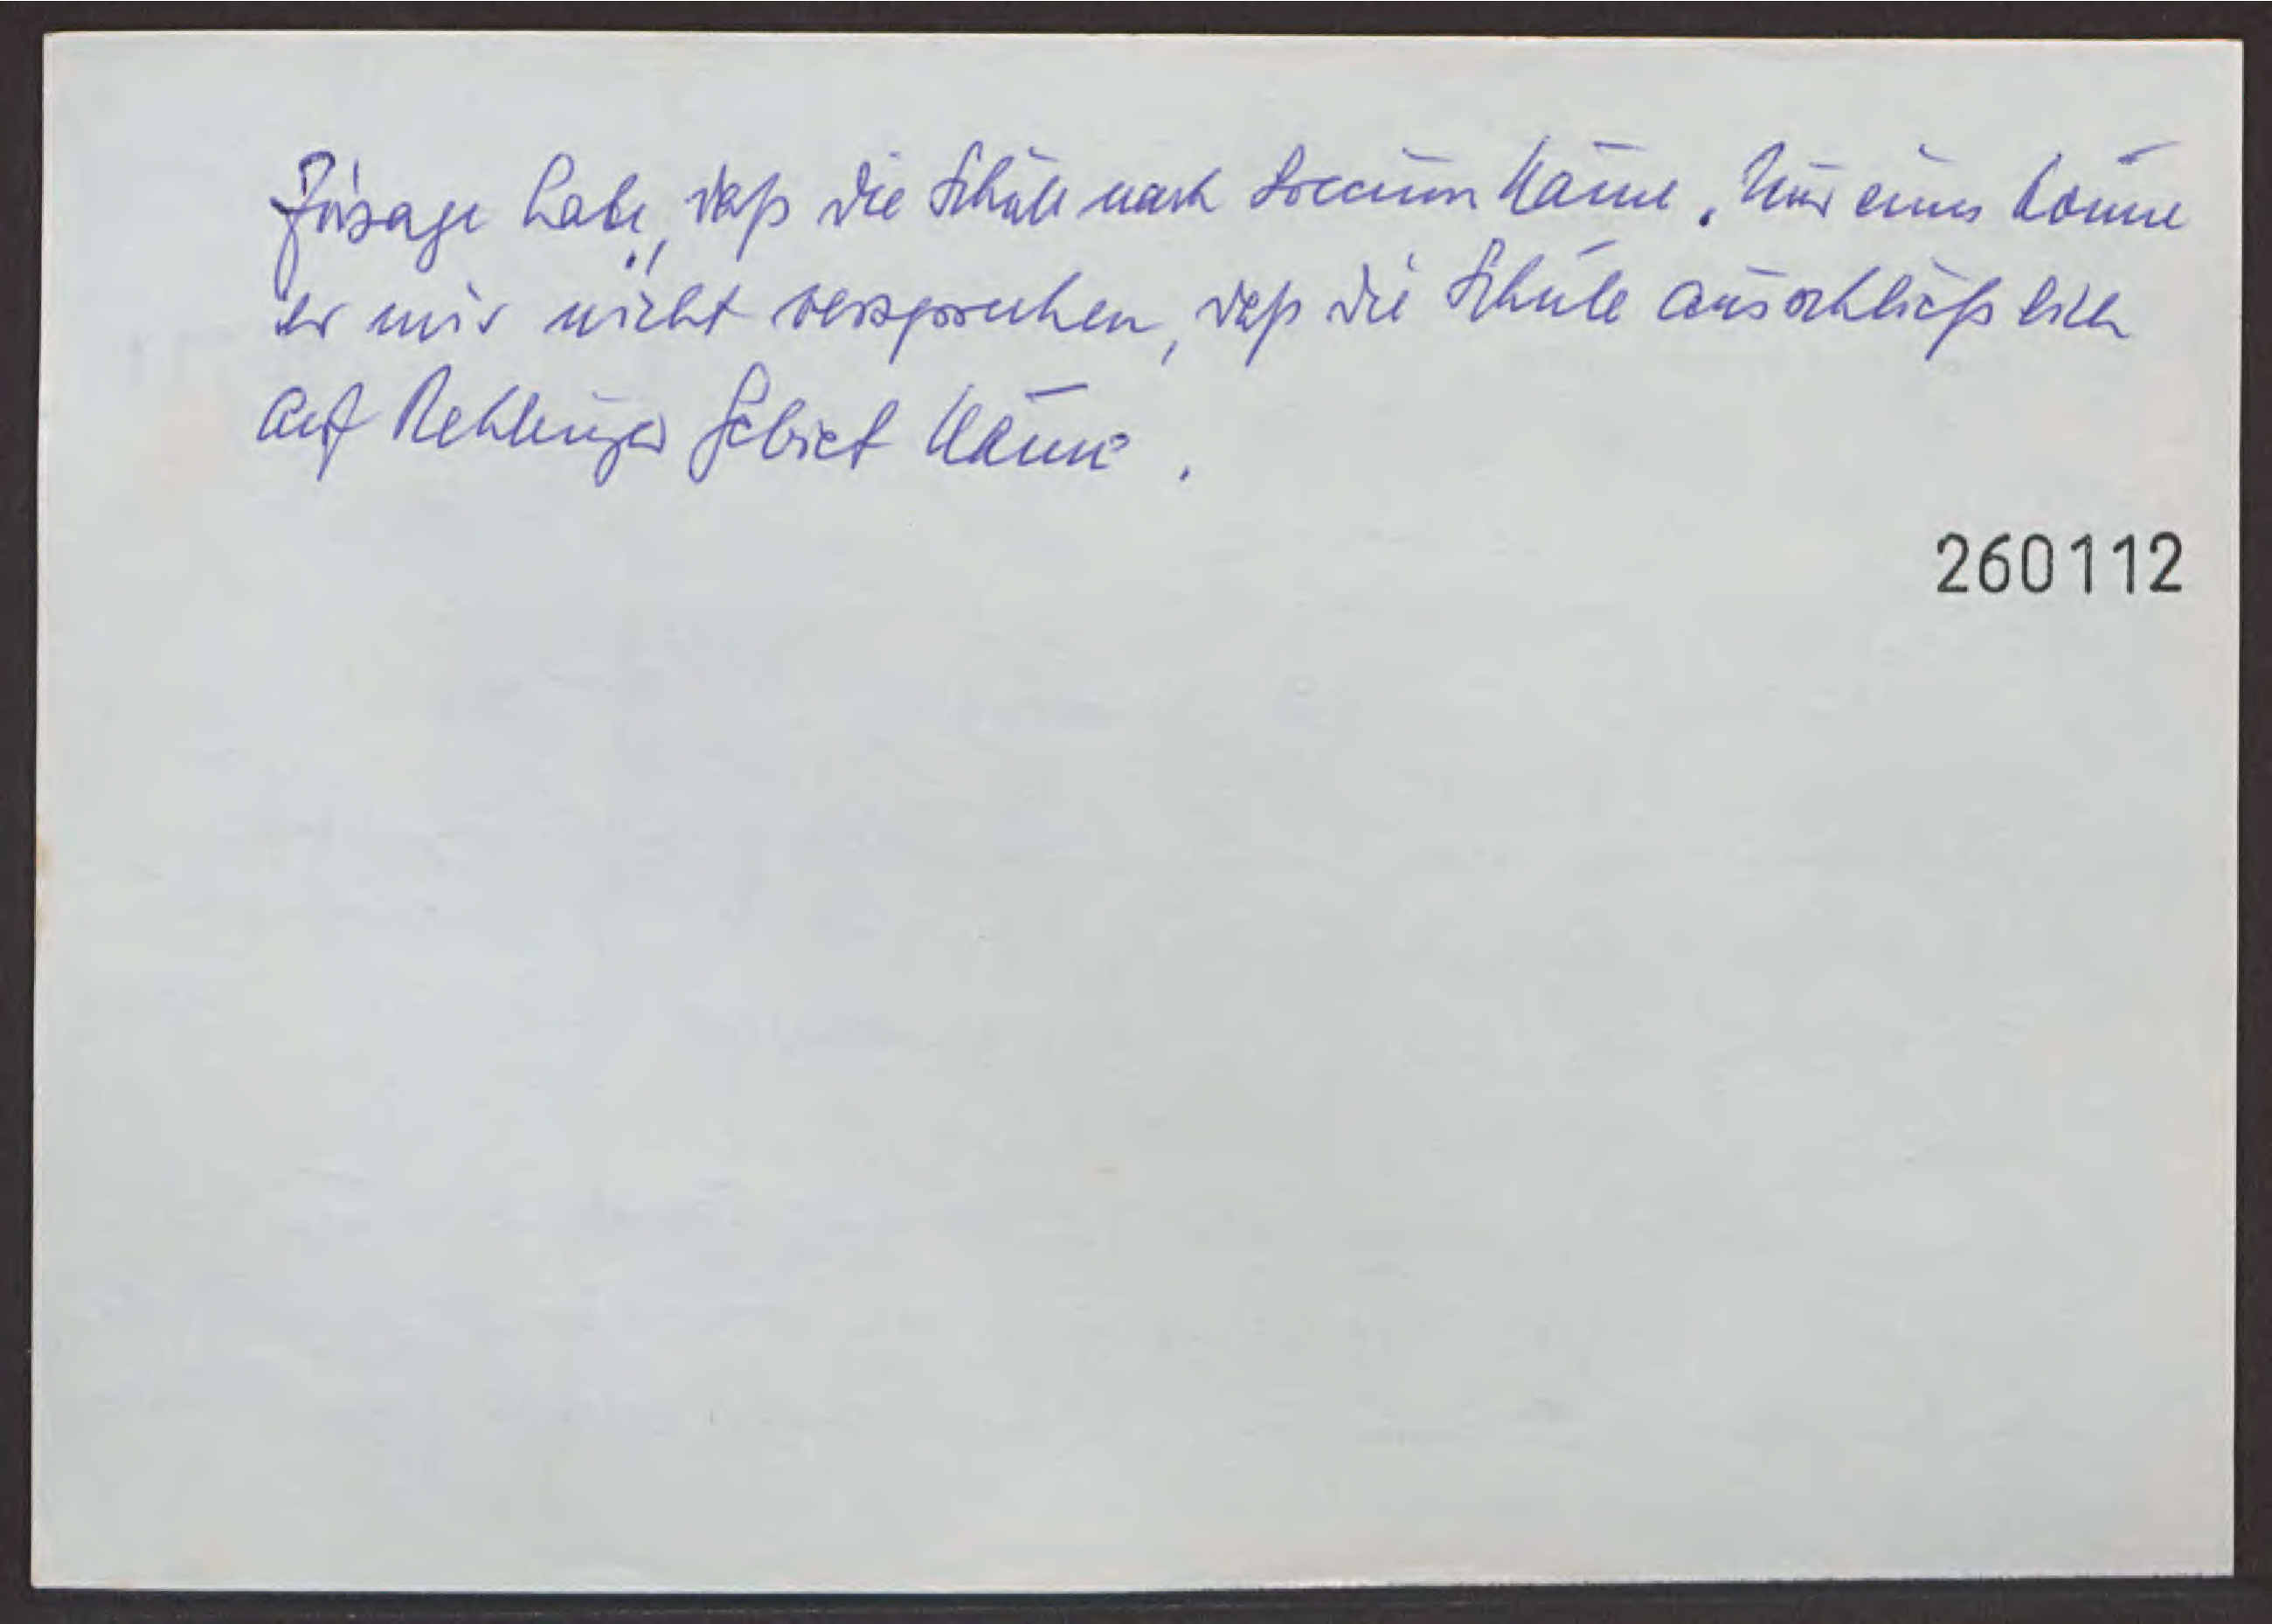 Zusage habe, daß die Schule nach Loccum käme. Nur eines könne
er mir nicht versprechen, daß die Schule ausschließlich
auf Rehburger Gebiet käme.
260112